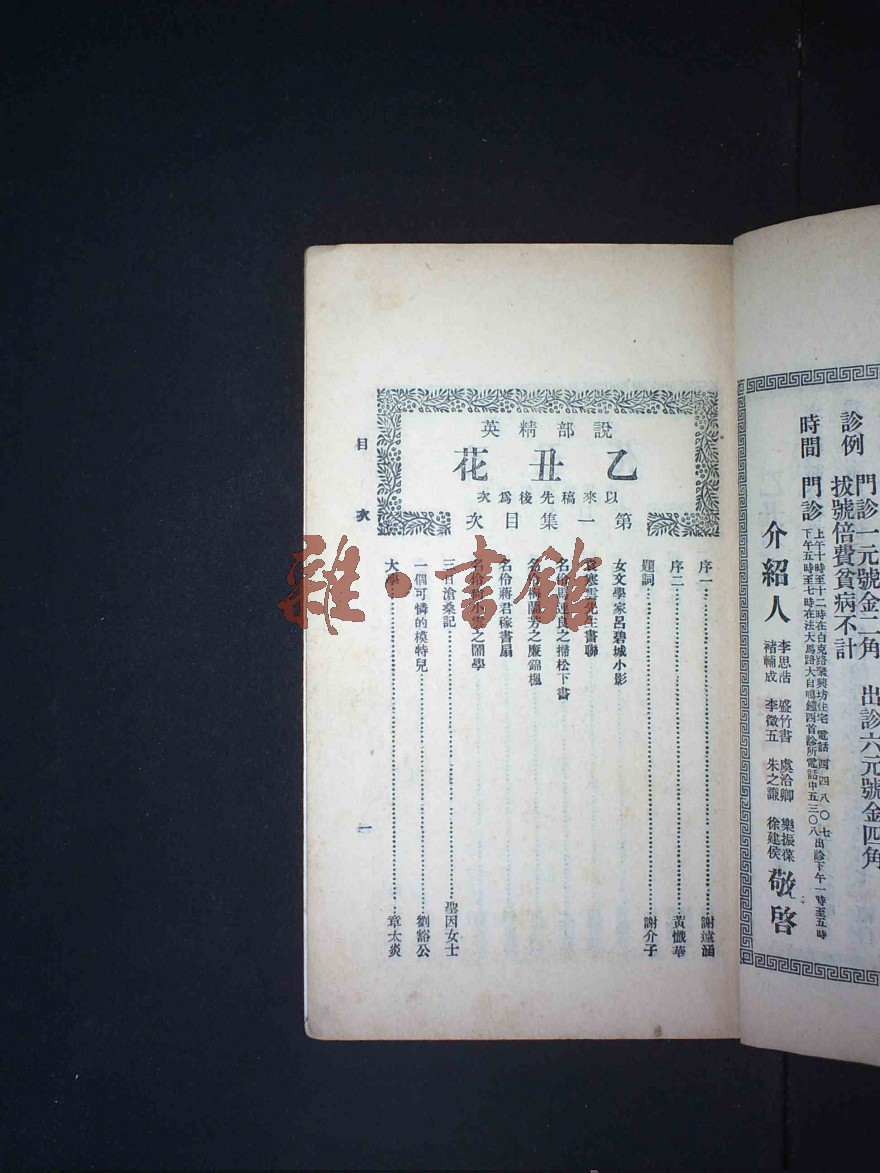 診例 門診一元號金二角 出診六元號金四角
拔號倍費貧病不計
時間 門診
上午十時至十二時在白克路聚興坊住宅 電話 西四八〇七 出診下午一時至五時
下午五時至七時在法大馬路大自鳴鐘西首診所電話中五三〇八
介紹人
李思浩 盛竹書 虞洽卿 樂振葆
褚輔成 李徵五 朱之謙 徐建侯
敬啓
說部精英
乙丑花
以來稿先後爲次
第一集目次
序一 謝遠涵
序二 黃懺華
題詞 謝介子
女文學家呂碧城小影
袁寒雲先生書聯
名伶馬連良之掃松下書
名伶梅蘭芳之廉錦楓
名伶蔣君稼書扇
名伶 小雲之鬧學
三日滄桑記 聖因女士
一個可憐的模特兒 劉豁公
大學 章太炎
目次
一
雜·書館